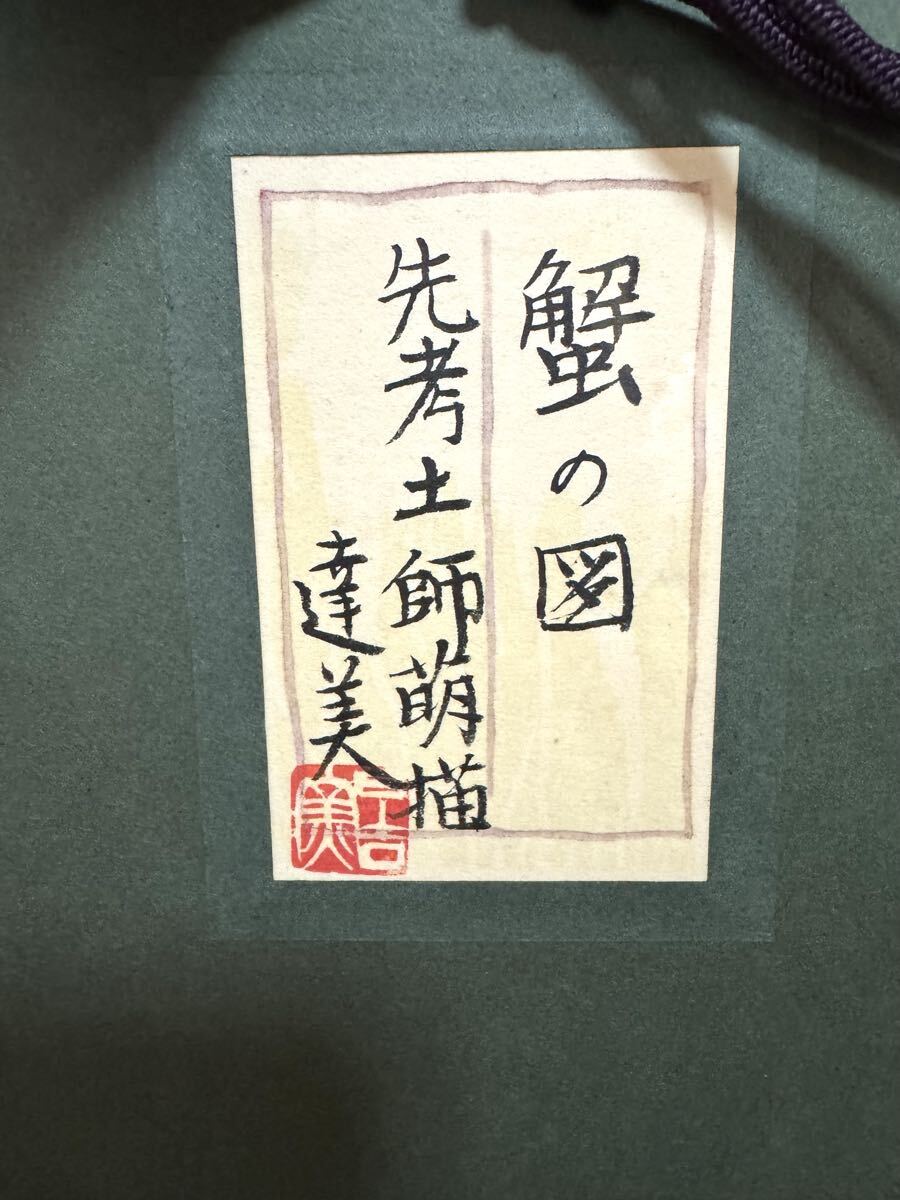 蟹の図
先考土師萌描
達美